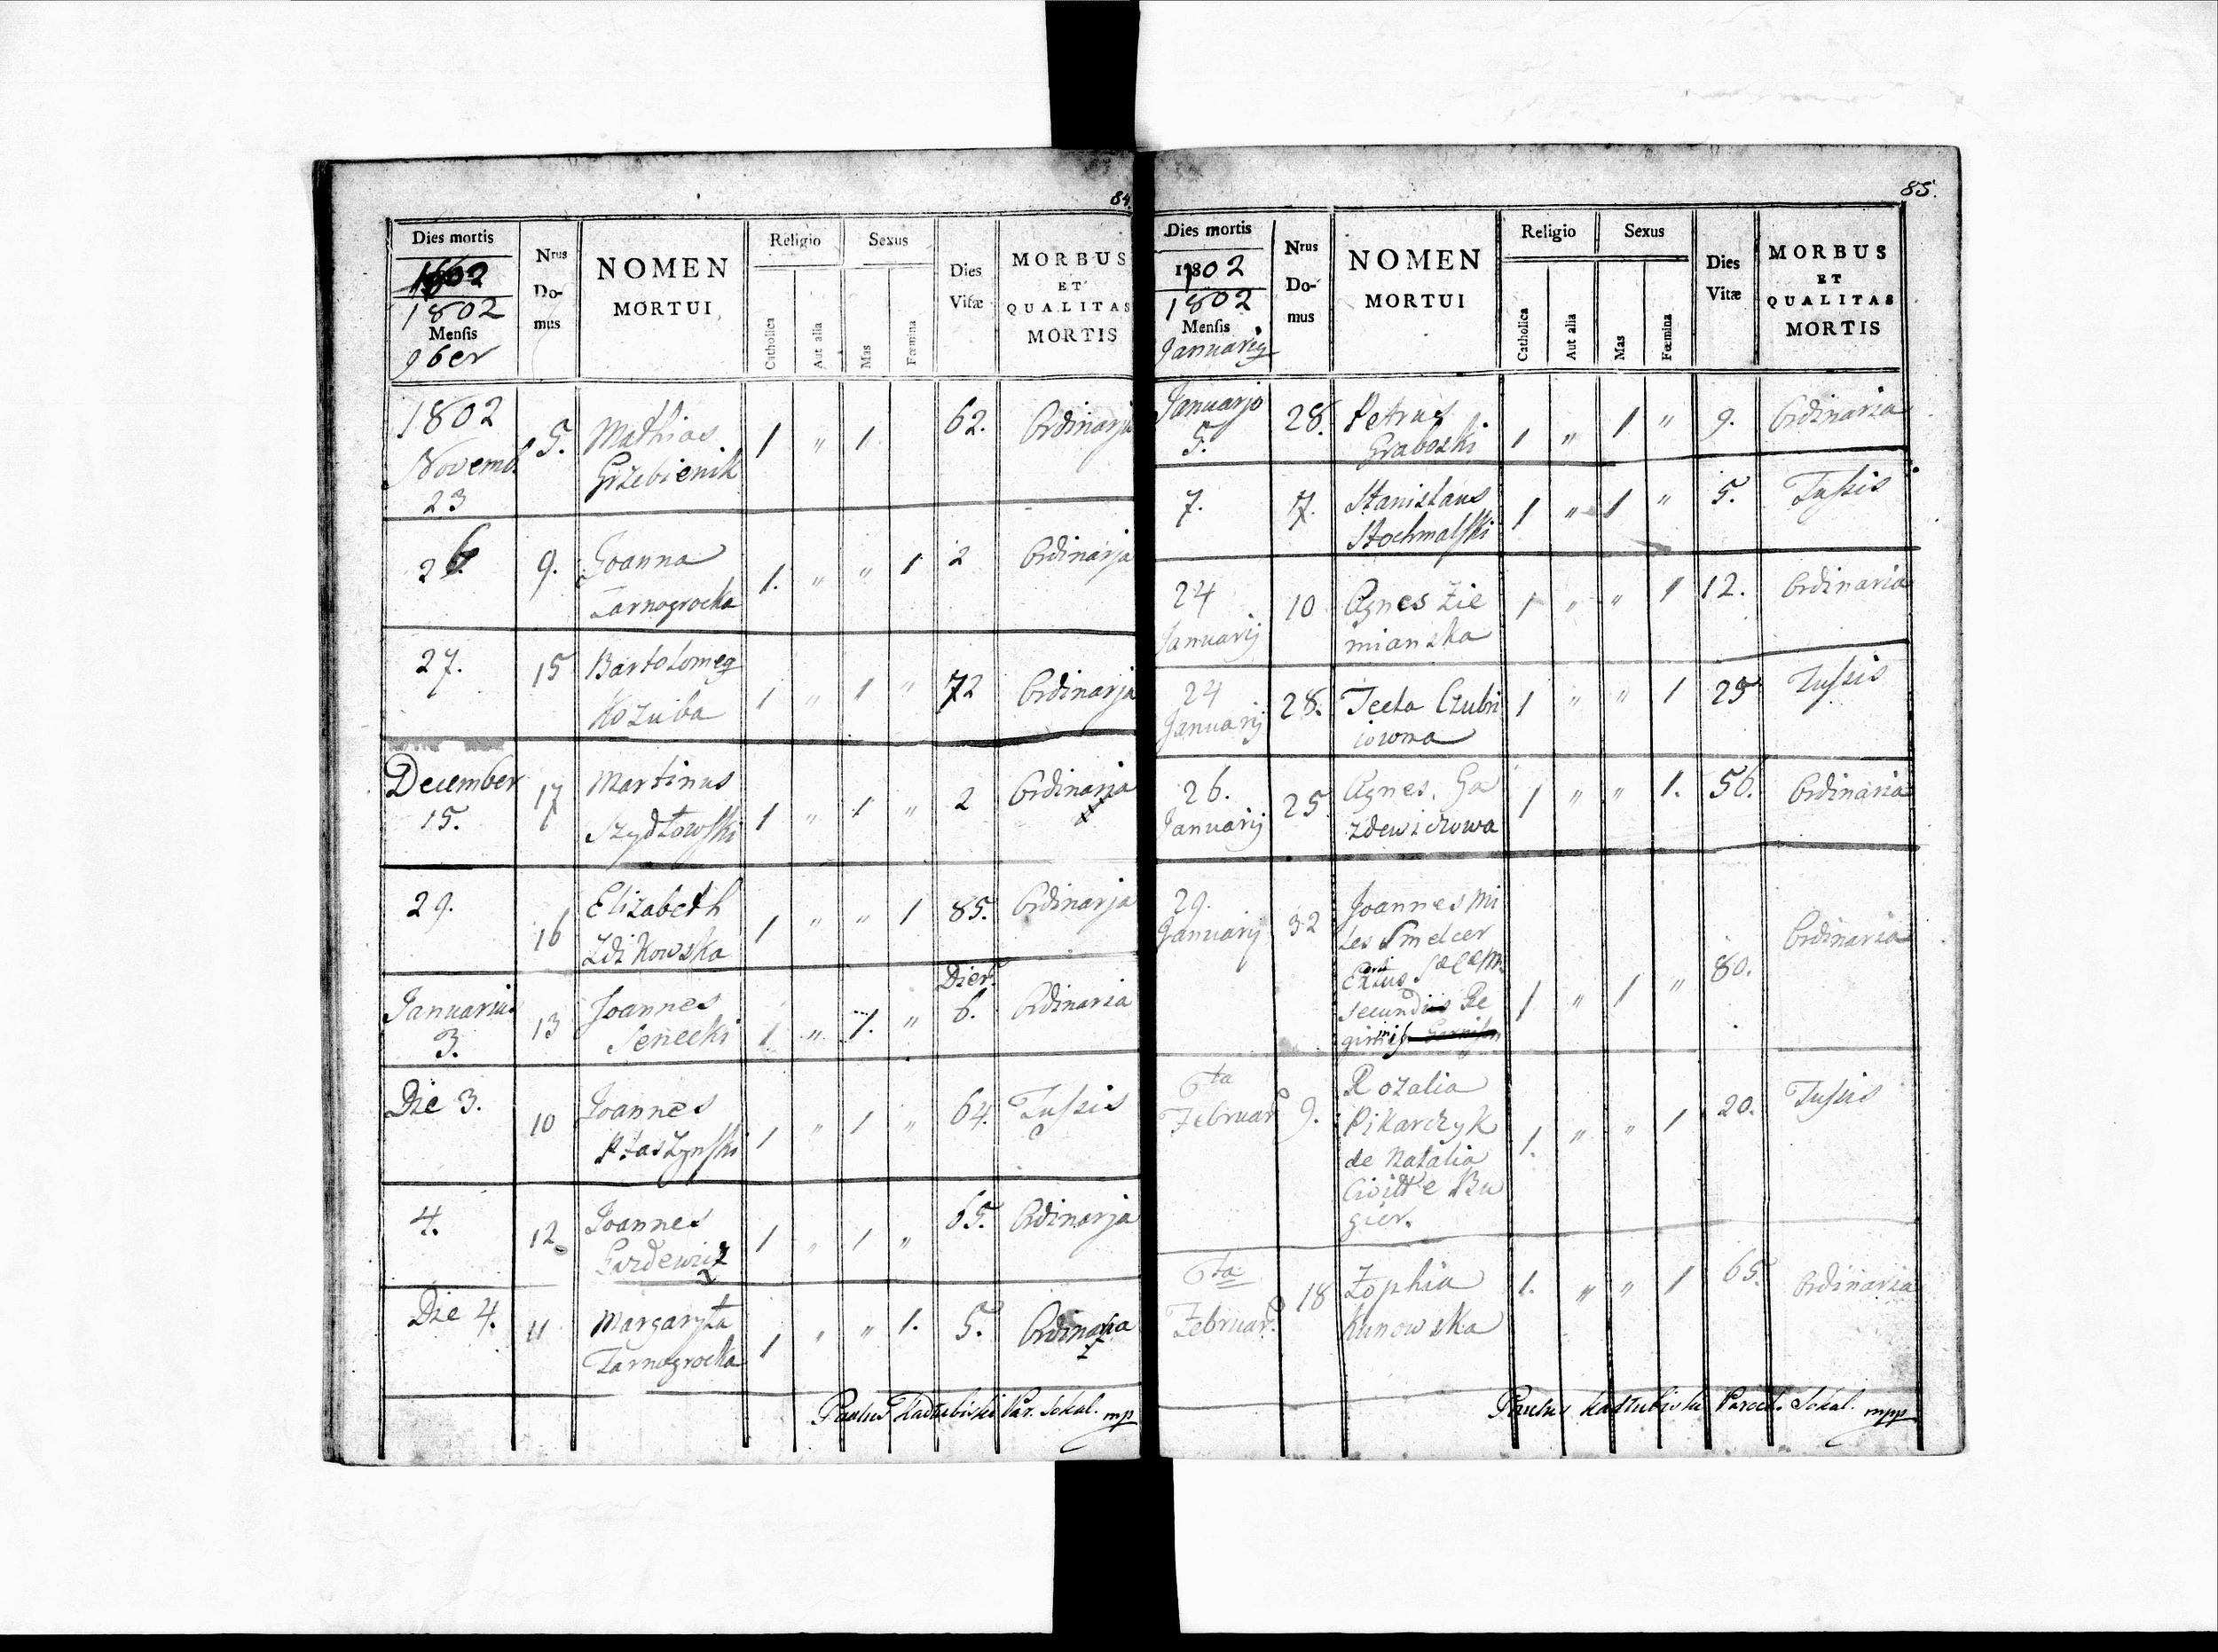 84.
Dies mortis
1802
1802
Mensis
9ber
Nrus
Do-
mus
NOMEN
MORTUI
Religio
Catholica
Aut alia
Sexus
Mas
Fœmina
Dies
Vitæ
MORBUS
ET
QUALITAS
MORTIS
1802
Novemb.
23
5. Mathias
Grzebienik
1 " 1. 62. Ordinarja
26. 9. Joanna
Tarnogrocka
1. " " 1 2 Ordinarja
27. 15 Bartolomeg
Kozuba
1 " 1 " 72 Ordinarja
December
15.
17 Martinus
Szydłowski
1 " 1 " 2 Ordinaria
29. 16 Elizabeth
Zdikowska
1 " " 1 85. Ordinarja
Januarius
3.
13 Joannes
Senecki
1. " 1. " Dier. 6. Ordinaria
Die 3. 10 Joannes
Ptaszynski
1 " 1 " 64. Tussis
4. 12 Joannes
Gazdewicz
1 " 1 " 65. Ordinarja
Die 4. 11 Margaryta
Tarnogrocka
1 " " 1. 5. Ordinaria
Paulus Kadłubiski Par. Sokal. mp
85.
Dies mortis
1802
1802
Mensis
Januarij
Nrus
Do-
mus
NOMEN
MORTUI
Religio
Catholica
Aut alia
Sexus
Mas
Fœmina
Dies
Vitæ
MORBUS
ET
QUALITAS
MORTIS
Januarjo
5.
28. Petrus
Graboski
1 " 1 " 9. Ordinaria
7. 7. Stanislaus
Stochmalski
1 " 1 " 5. Tussis
24
Januarij
10 Agnes Zie
mianska
1 " " 1 12. Ordinaria
24
Januarij
28. Tecla Czubri
iowna
1 " " 1 25 Tussis
26.
Januarij
25 Agnes. Ga
zdewiczowa
1 " " 1. 56. Ordinaria
29.
Januarij
32 Joannes Mi
les Smelcer
secundis Re
1 " 1 " 80. Ordinaria
6ta
Februar.
9. Rozalia
Pikarczyk
de Natalia
Bu
gier.
1. " " 1 20. Tussis
6ta
Februar.
18 Zophia
Kunowska
1. " " 1 65. Ordinaria
Paulus Kadłubiski Paroch. Sokal. mpp